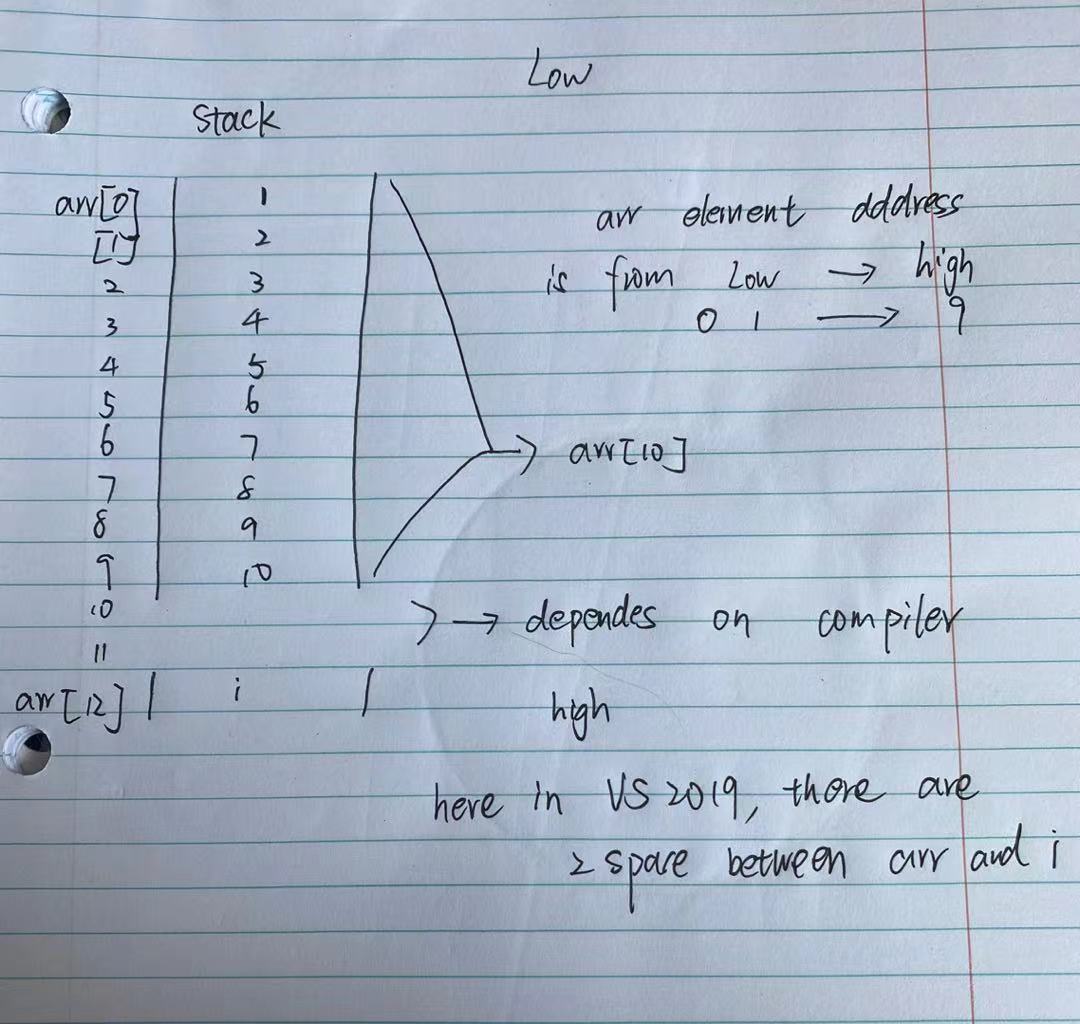 Low
Stack
arr[0] 1
[1] 2
2 3
3 4
4 5
5 6
6 7
7 8
8 9
9 10
10
11
arr[12] i
arr element address
is from Low → high
0 1 → 9
→ arr[10]
→ dependes on compiler
high
here in VS 2019, there are
2 space between arr and i